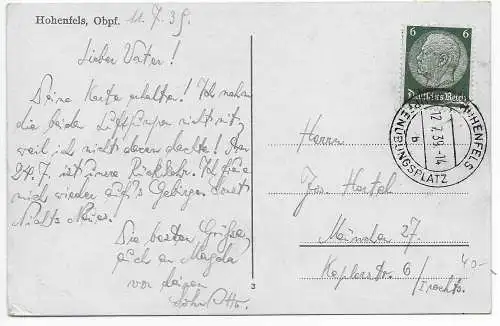 Hohenfels, Obpf. 11.7.39.
Lieber Vater!
Deine Karte erhalten! Ich nahm
die beiden Luftpumpen nicht mit,
weil ich nicht daran dachte! Am
24.7. ist unsere Rückkehr. Ich freue
mich wieder auf's Gebirge. Sonst
Nichts Neues.
Die besten Grüße,
auch an Magda
von deinem
Sohn Otto.
3
6 6
Deutsches Reich
HOHENFELS
12.7.39.-14
b
ÜBUNGSPLATZ
Herrn
Jos. Hartel
München 27.
Keplerstr. 6 / I rechts.
40-